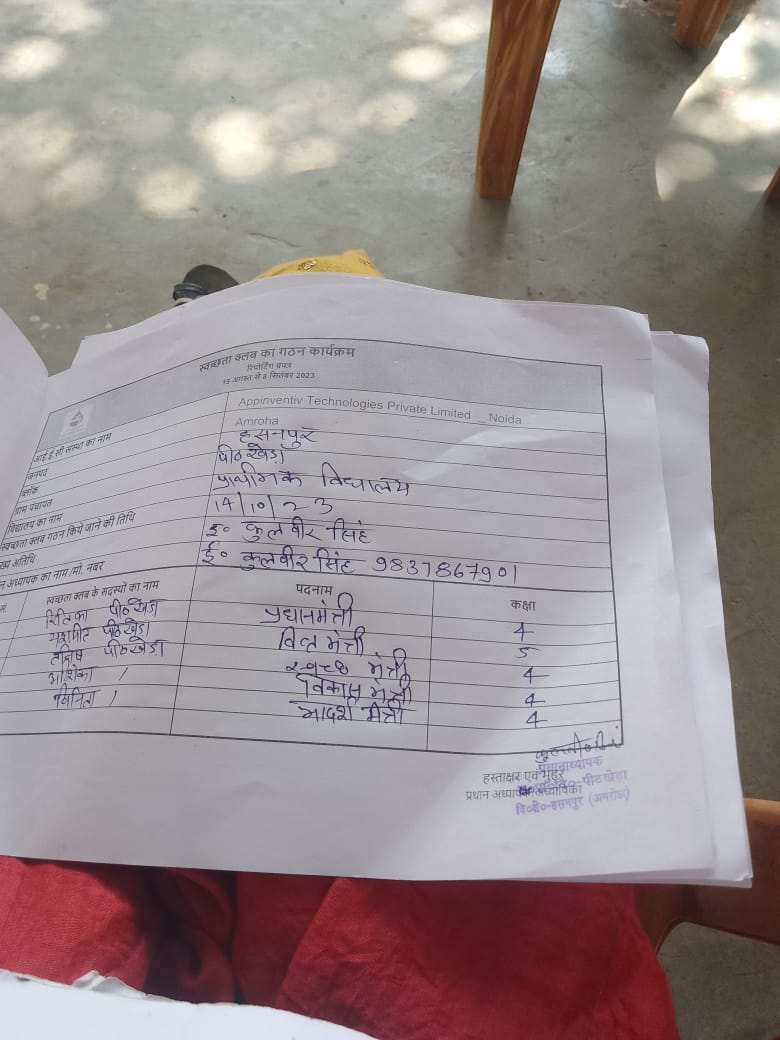 स्वच्छता क्लब का गठन कार्यक्रम
रिपोर्टिंग प्रपत्र
15 अगस्त से 8 सितंबर 2023
आई.ई.सी संस्था का नाम Appinventiv Technologies Private Limited _ Noida
जनपद Amroha
ब्लॉक हसनपुर
ग्राम पंचायत पीठखेड़ा
विद्यालय का नाम प्राथमिक विद्यालय
स्वच्छता क्लब गठन किये जाने की तिथि 14/10/23
अतिथि इ० कुलवीर सिंह
अध्यापक का नाम/मो. नंबर ई० कुलवीर सिंह 9837867901
स्वच्छता क्लब के सदस्यों का नाम पदनाम कक्षा
रितिका पीठखेड़ा प्रधानमंत्री 4
पीठखेड़ा वित्त मंत्री 5
पीठखेड़ा स्वच्छ मंत्री 4
विकास मंत्री 4
आदर्श मंत्री 4
हस्ताक्षर एवं मुहर
प्रधानाध्यापक
प्रधान अध्यापक/अध्यापिका
पीठखेड़ा
वि०क्षे०-हसनपुर (अमरोहा)